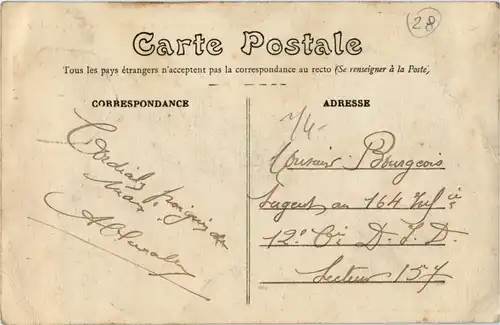 28
Carte Postale
Tous les pays étrangers n'acceptent pas la correspondance au recto (Se renseigner à la Poste)
CORRESPONDANCE
ADRESSE
Cordiales poignées de
Main
1/4-
Monsieur Bourgeois
Sergent au 164 Inf ie
12e Cie D. I. D.
Secteur 157